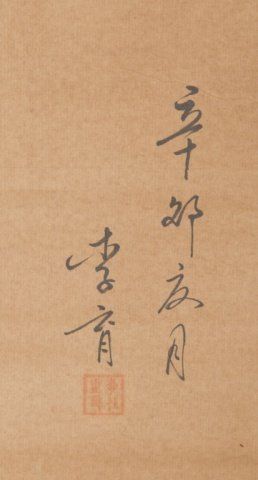 辛卯夏月
李育